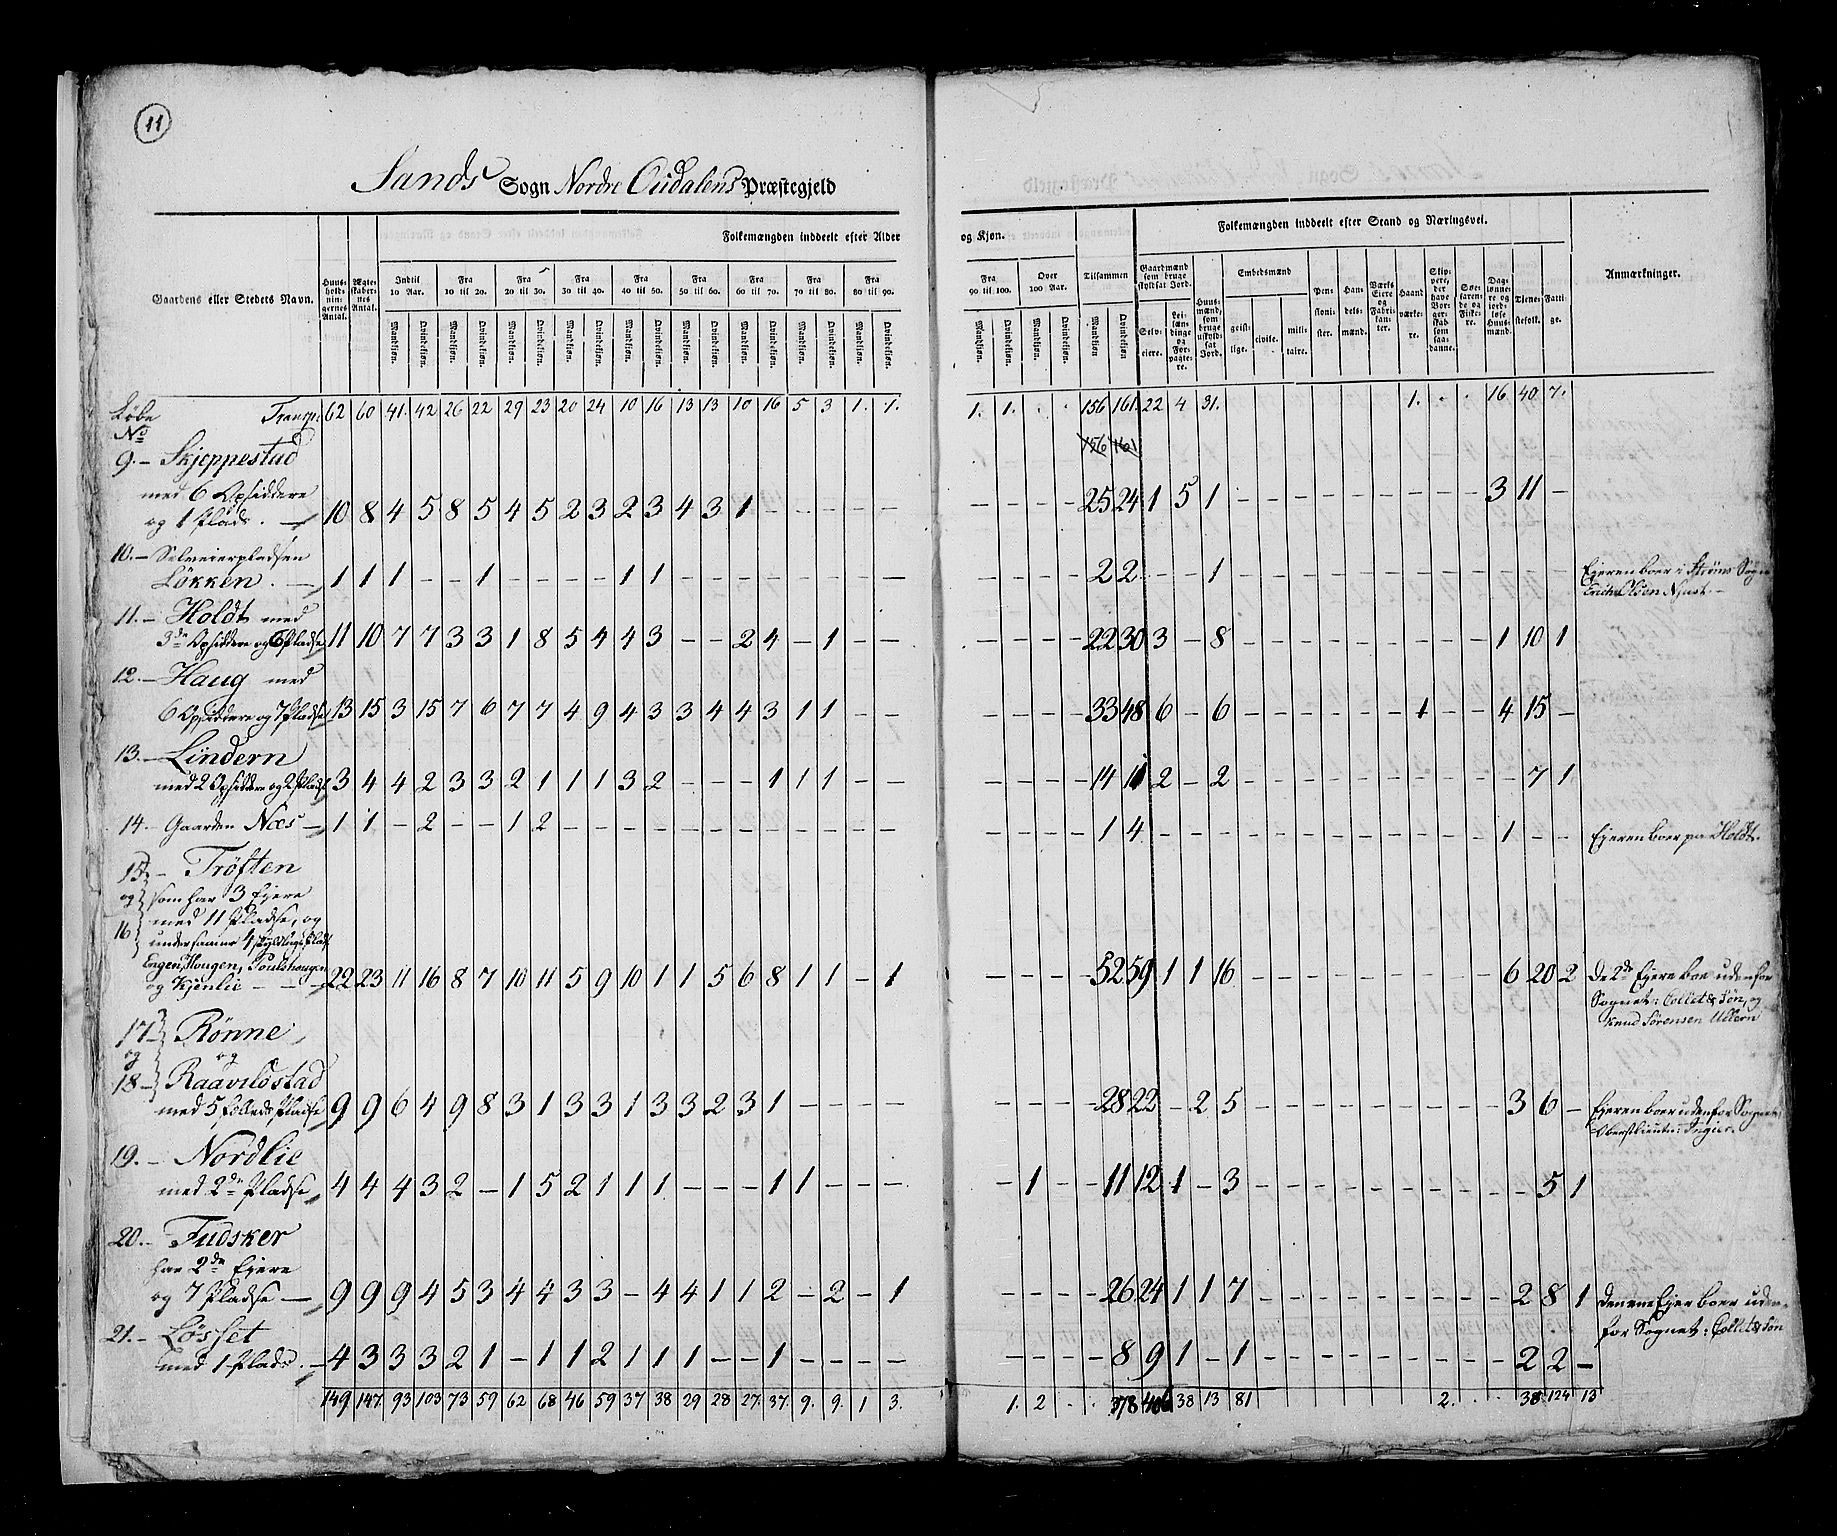 11
Sands Sogn Nordre Oudalens Præstegjeld
Folkemængden inddeelt efter Alder og Kjøn.
Folkemængden inddeelt efter Stand og Næringsvei.
Gaardens eller Stedets Navn. Huusholdningernes Antal. Ægteskabernes Antal. Indtil 10 Aar. Fra 10 til 20. Fra 20 til 30. Fra 30 til 40. Fra 40 til 50. Fra 50 til 60. Fra 60 til 70. Fra 70 til 80. Fra 80 til 90. Fra 90 til 100. Over 100 Aar. Tilsammen Gaardmænd som bruge skyldsat Jord. Huusmænd, som bruge uskyldsat Jord. Embedsmænd Pensionister. Handelsmænd. Værks Eiere og Fabrikanter. Haandværkere. Skippere, der have Borgerskab som saadanne. Søefarende og Fiskere. Daglønnere og jordløse Huusmænd. Tjenestefolk. Fattige. Anmærkninger.
Mandkiøn. Qvindekiøn. Mandkiøn. Qvindekiøn. Mandkiøn. Qvindekiøn. Mandkiøn. Qvindekiøn. Mandkiøn. Qvindekiøn. Mandkiøn. Qvindekiøn. Mandkiøn. Qvindekiøn. Mandkiøn. Qvindekiøn. Mandkiøn. Qvindekiøn. Mandkiøn. Qvindekiøn. Mandkiøn. Qvindekiøn. Mandkiøn Qvindekiøn Selveiere. Leilændinge og Forpagtere. geistlige. civile. militaire.
Løbe No Transp. 62 60 41. 42 26 22 29 23 20 24 10 16 13 13 10 16 5 3 1. 1. 1. 1. . . 156 161. 22 4 31. 1. . . 16 40. 7.
156 161
9. – Skjeppestad
med 6 Opsiddere
og 1 Plads. – 10 8 4 5 8 5 4 5 2 3 2 3 4 3 1 – – – – – – – – – 25 24 1 5 1 – – – – – – – – – 3 11 –
10. – Selveierpladsen
Løkken. – 1 1 1 – – 1 – – – – 1 1 – – – – – – – – – – – – 2 2 – – 1 – – – – – – – – – – – – Ejeren boer i Strøms Sogn
11. – Holdt med
3de Opsiddere og 6 Pladse 11 10 7 7 3 3 1 8 5 4 4 3 – – 2 4 – 1 – – – – – – 22 30 3 – 8 – – – – – – – – – 1 10 1
12. – Haug med
6 Opsiddere og 7 Pladse 13 15 3 15 7 6 7 7 4 9 4 3 3 4 4 3 1 1 – – – – – – 33 48 6 – 6 – – – – – – 1 – – 4 15 –
13. – Lindern
med 2 Opsiddere og 2 Pladse 3 4 4 2 3 3 2 1 1 1 3 2 – – – 1 1 1 – – – – – – 14 11 2 – 2 – – – – – – – – – – 7 1
14 – Gaarden Næs – 1 1 – 2 – – 1 2 – – – – – – – – – – – – – – – – 1 4 – – – – – – – – – – – – 1 – – Ejeren boer paa Holdt.
15 – Trøften
og som har 3 Ejere
16 med 11 Pladse, og
Engen, Hougen, Poulshaugen
og Kjenlie – – 22 23 11 16 8 7 10 11 5 9 10 1 1 5 6 8 1 1 – 1 – – – – 52 59 1 1 16 – – – – – – – – – 6 20 2 De 2de Ejere boe udenfor
Sognet: Collet & Søn, og
Knud Sørensen Ullern
17 – Rønne
og og
18 – Raavildstad
med 5 fælleds Pladse 9 9 6 4 9 8 3 1 3 3 1 3 3 2 3 1 – – – – – – – – 28 22 – 2 5 – – – – – – – – – 3 6 – Ejeren boer udenfor Sognet,
19. – Nordlie
med 2de Pladse 4 4 4 3 2 – 1 5 2 1 1 1 – – – 1 1 – – – – 1 – – 11 12 1 – 3 – – – – – – – – – – 5 1
20. – Tudsker
har 2de Ejere
og 7 Pladse – 9 9 9 4 5 3 4 4 3 3 – 4 4 1 1 2 – 2 – 1 – – – – 26 24 1 1 7 – – – – – – – – – 2 8 1 Den ene Ejer boer uden-
for Sognet: Collet & Søn
21. – Løsset
med 1 Plads. – 4 3 3 3 2 1 – 1 1 2 1 1 1 – – 1 – – – – – – – – 8 9 1 – 1 – – – – – – – – – 2 2 –
149 147. 93 103 73 59 62 68 46 59 37 38 29 28 27. 37. 9. 9. 1 3. 1. 2 . . 378 406 38 13 81 2. . . 38 124 13